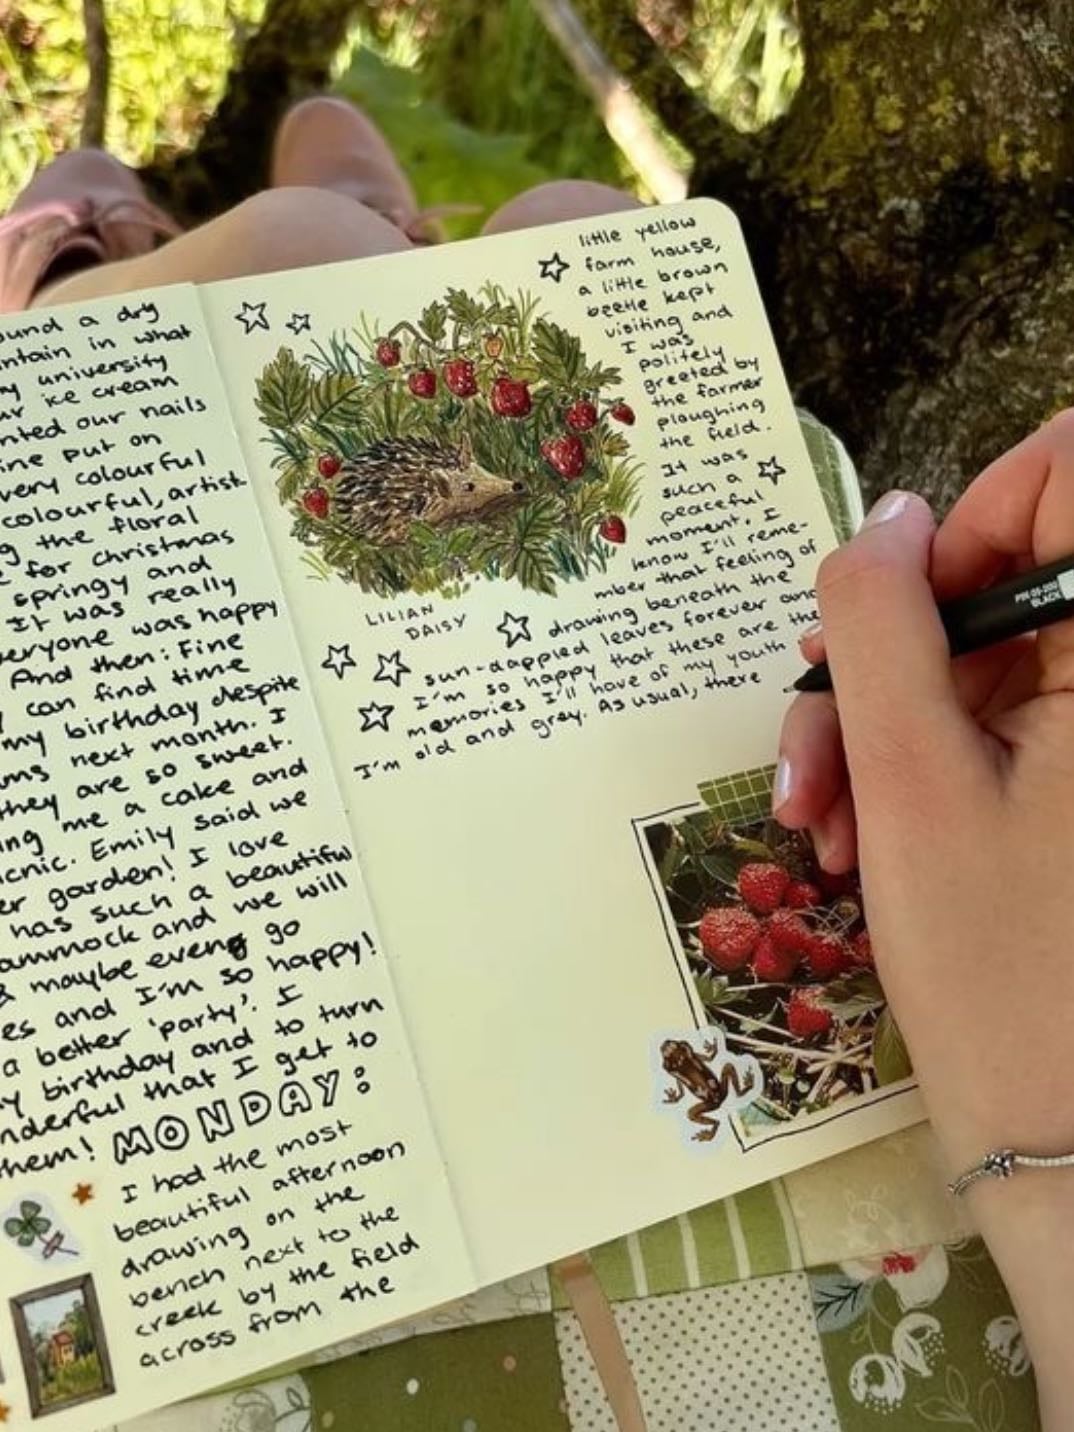 ound a dry
ntain in what
y university
ur ice cream
nted our nails
ine put on
very colourful
colourful, artist
g the floral
e for christmas
springy and
It was really
veryone was happy
And then: Fine
y can find time
my birthday despite
ms next month. I
they are so sweet.
ing me a cake and
icnic. Emily said we
er garden! I love
has such a beautiful
ammock and we will
& maybe even go
es and I'm so happy!
a better 'party'. I
y birthday and to turn
nderful that I get to
them! MONDAY:
I had the most
beautiful afternoon
drawing on the
bench next to the
creek by the field
across from the
little yellow
farm house,
a little brown
beetle kept
visiting and
I was
politely
greeted by
the farmer
ploughing
the field.
It was
such a
peaceful
moment. I
know I'll reme-
mber that feeling of
drawing beneath the
sun-dappled leaves forever and
I'm so happy that these are the
memories I'll have of my youth
old and grey. As usual, there
I'm
LILIAN
DAISY
BLACK